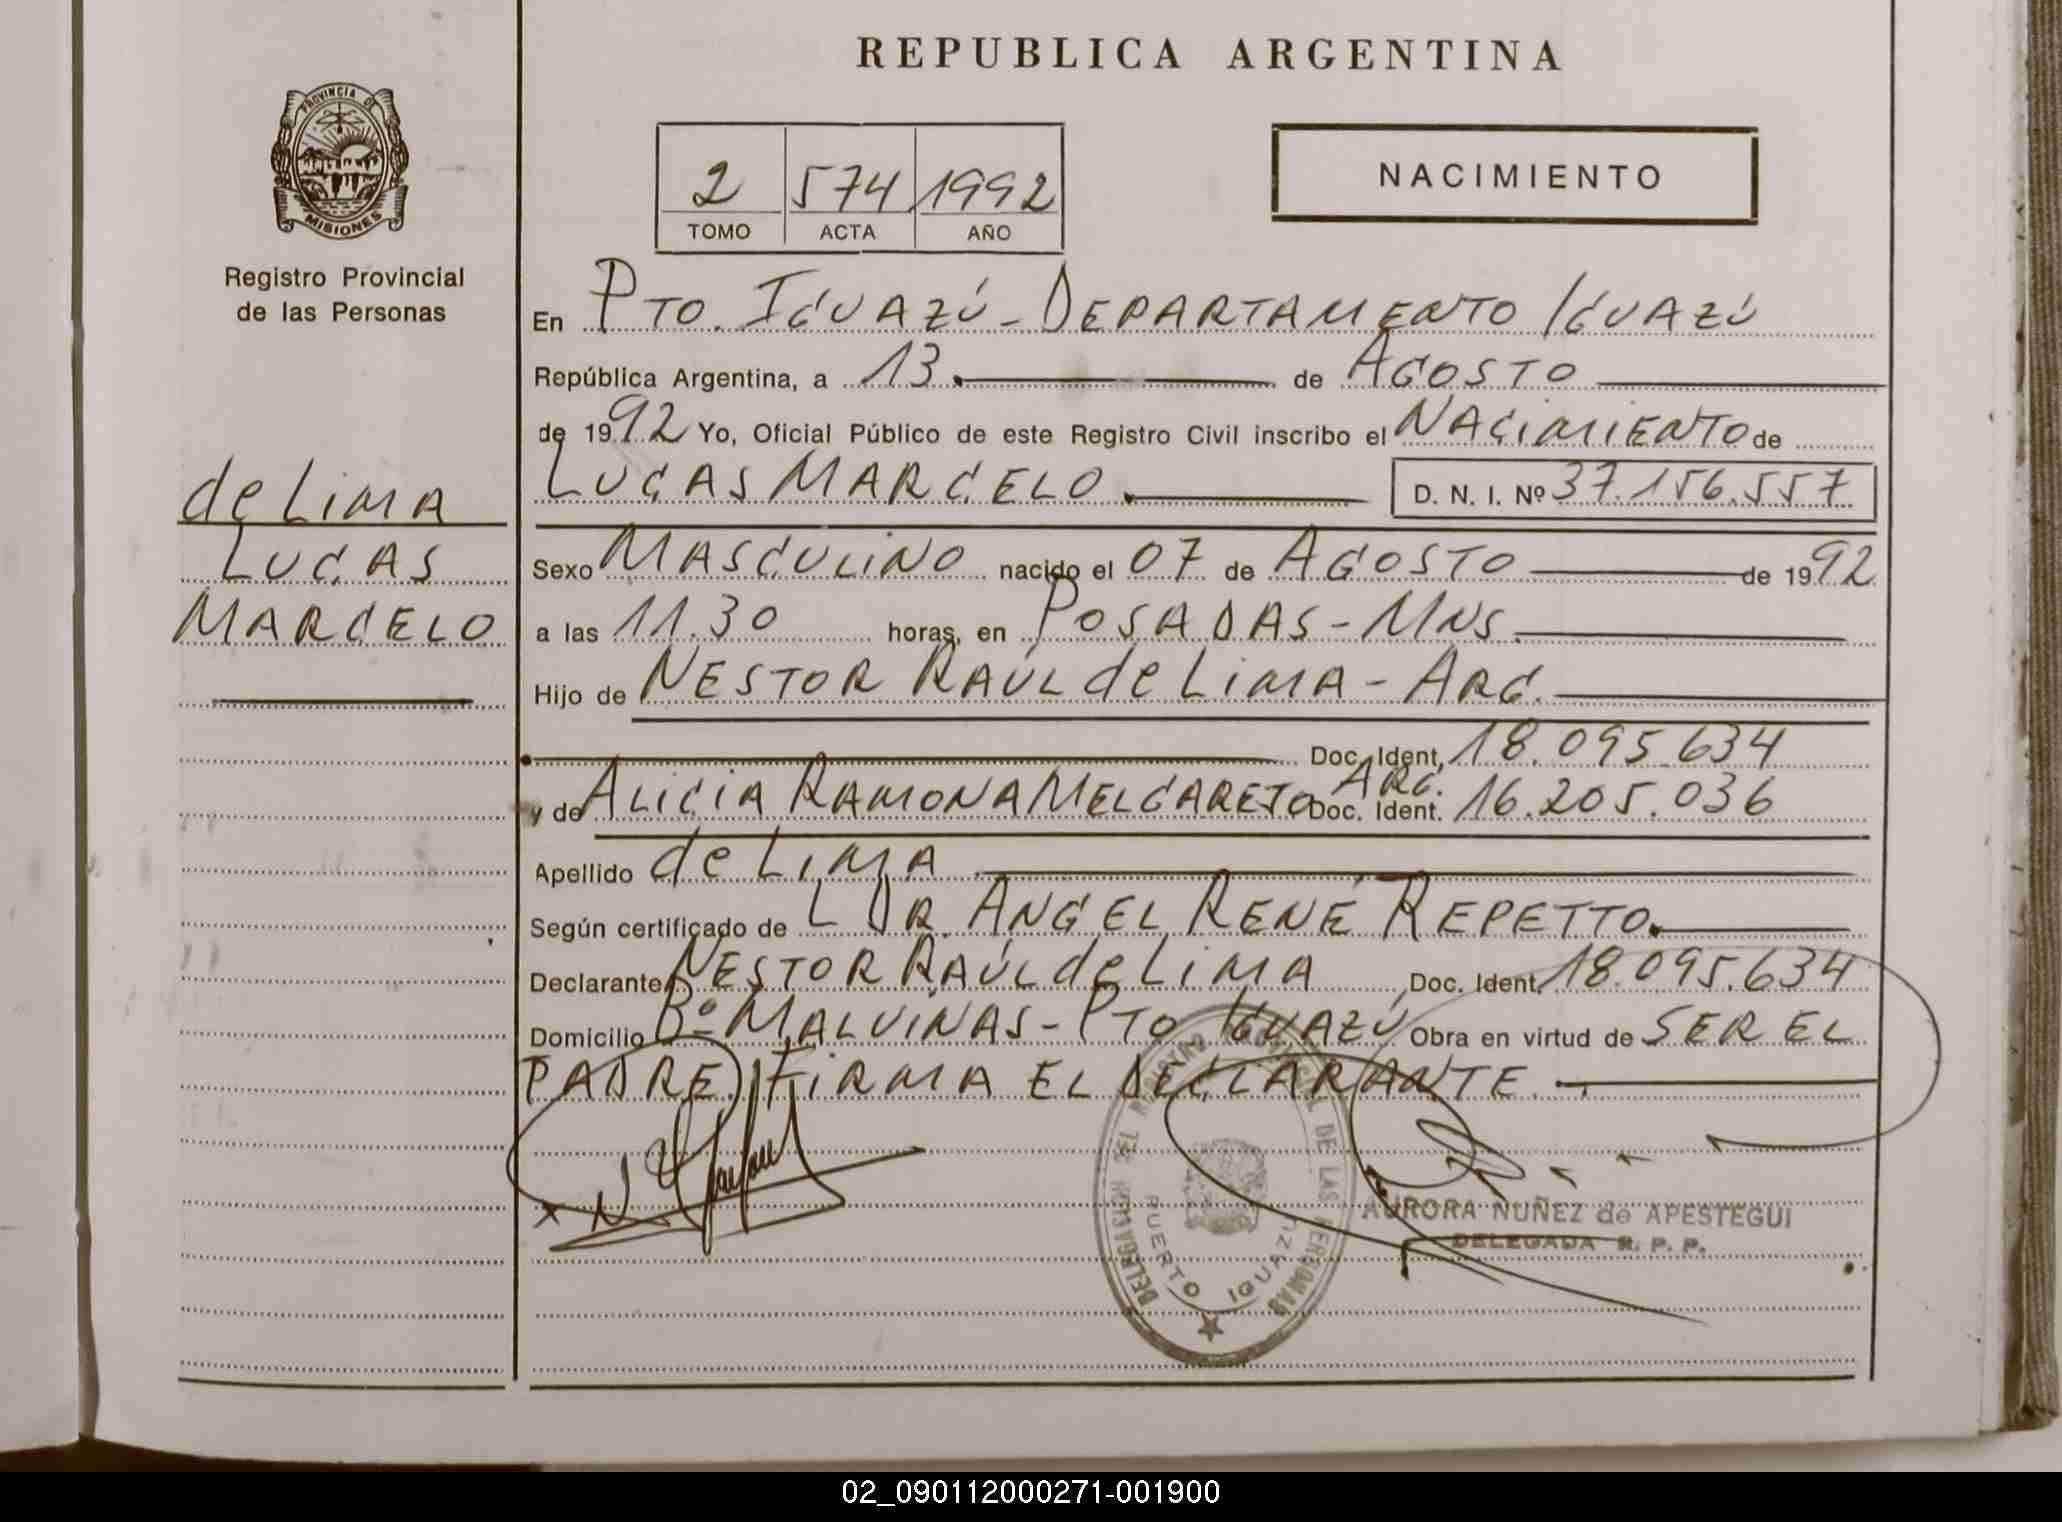 REPUBLICA ARGENTINA
PROVINCIA DE
MISIONES
Registro Provincial
de las Personas
2 574 1992
TOMO ACTA AÑO
NACIMIENTO
de LIMA
LUCAS
MARCELO
En PTO. IGUAZÚ - DEPARTAMENTO IGUAZÚ
República Argentina, a 13. de AGOSTO
de 1992 Yo, Oficial Público de este Registro Civil inscribo el NACIMIENTO de
LUCAS MARCELO. D. N. I. Nº 37.156.557
Sexo MASCULINO nacido el 07 de AGOSTO de 1992
a las 11.30 horas, en POSADAS - MNS.
Hijo de NESTOR RAÚL de LIMA - ARG.
Doc. Ident. 18.095.634
y de ALICIA RAMONA MELGAREJO ARG. Doc. Ident. 16.205.036
Apellido de LIMA
Según certificado de L DR. ANGEL RENÉ REPETTO.
Declarante NESTOR RAÚL de LIMA Doc. Ident. 18.095.634
Domicilio Bº MALVINAS - PTO IGUAZÚ Obra en virtud de SER EL
PADRE. FIRMA EL DECLARANTE.
DELEGACION DEL REGISTRO PROVINCIAL DE LAS PERSONAS
PUERTO IGUAZU
AURORA NUÑEZ de APESTEGUI
DELEGADA R. P. P.
02_090112000271-001900